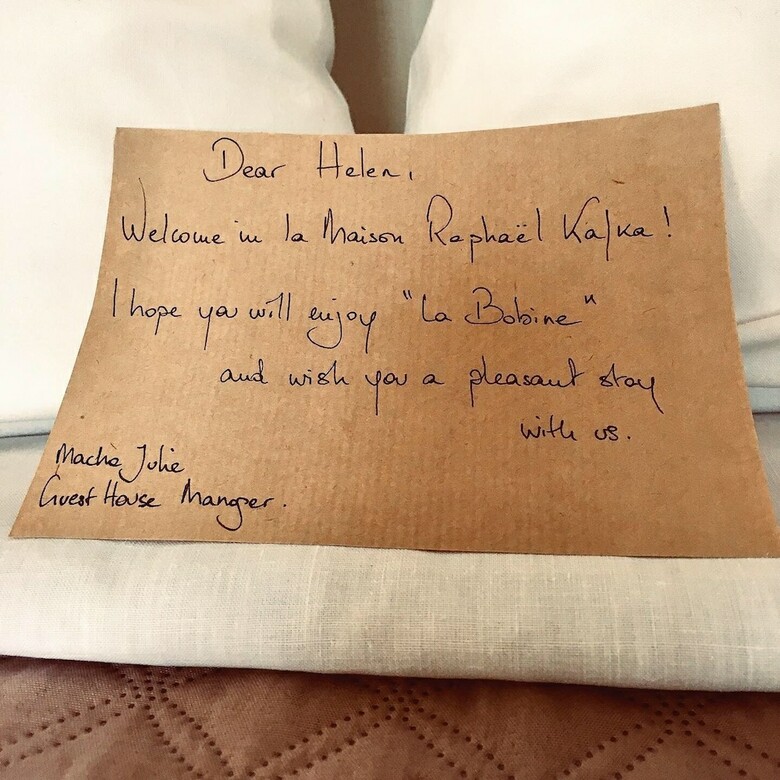 Dear Helen,
Welcome in la Maison Raphaël Kafka !
I hope you will enjoy "La Bobine"
and wish you a pleasant stay
with us.
Mache Julie
Guest House Manager.